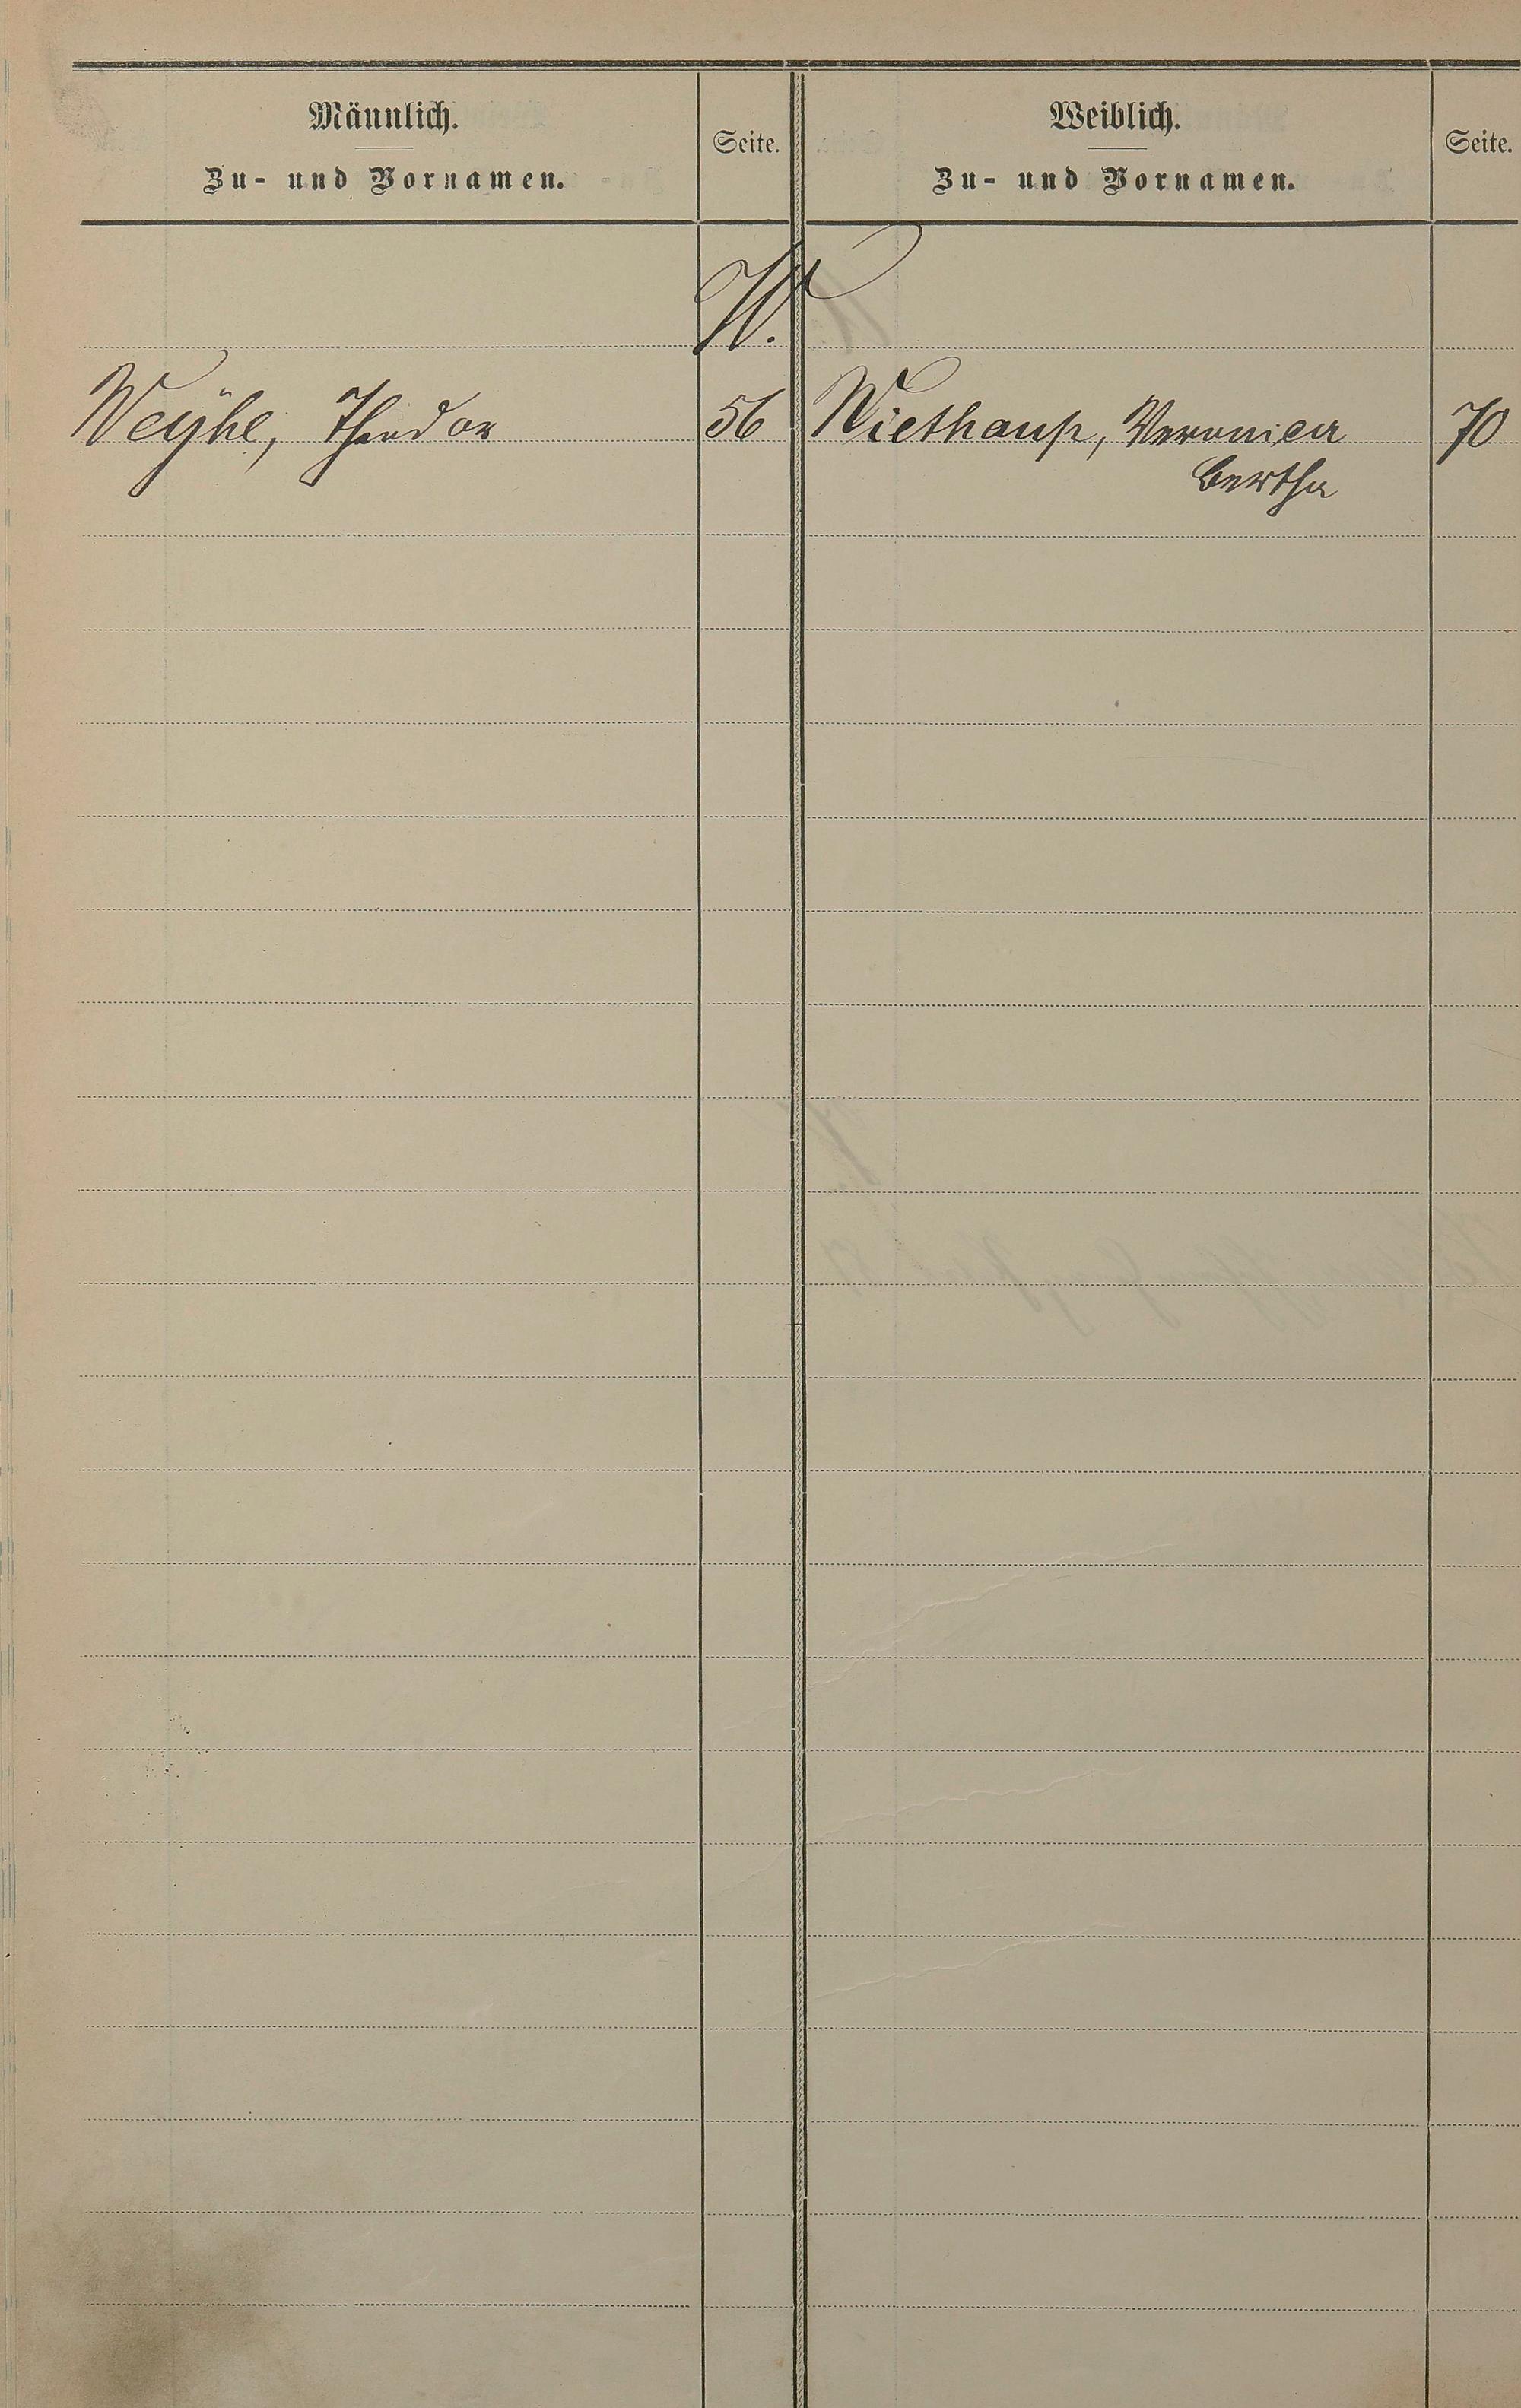 Männlich.
Zu- und Vornamen.
Seite.
Weiblich.
Zu- und Vornamen.
Seite.
W.
Weÿhe, Theodor
56
Wiethaup, Veronica
70
Bertha